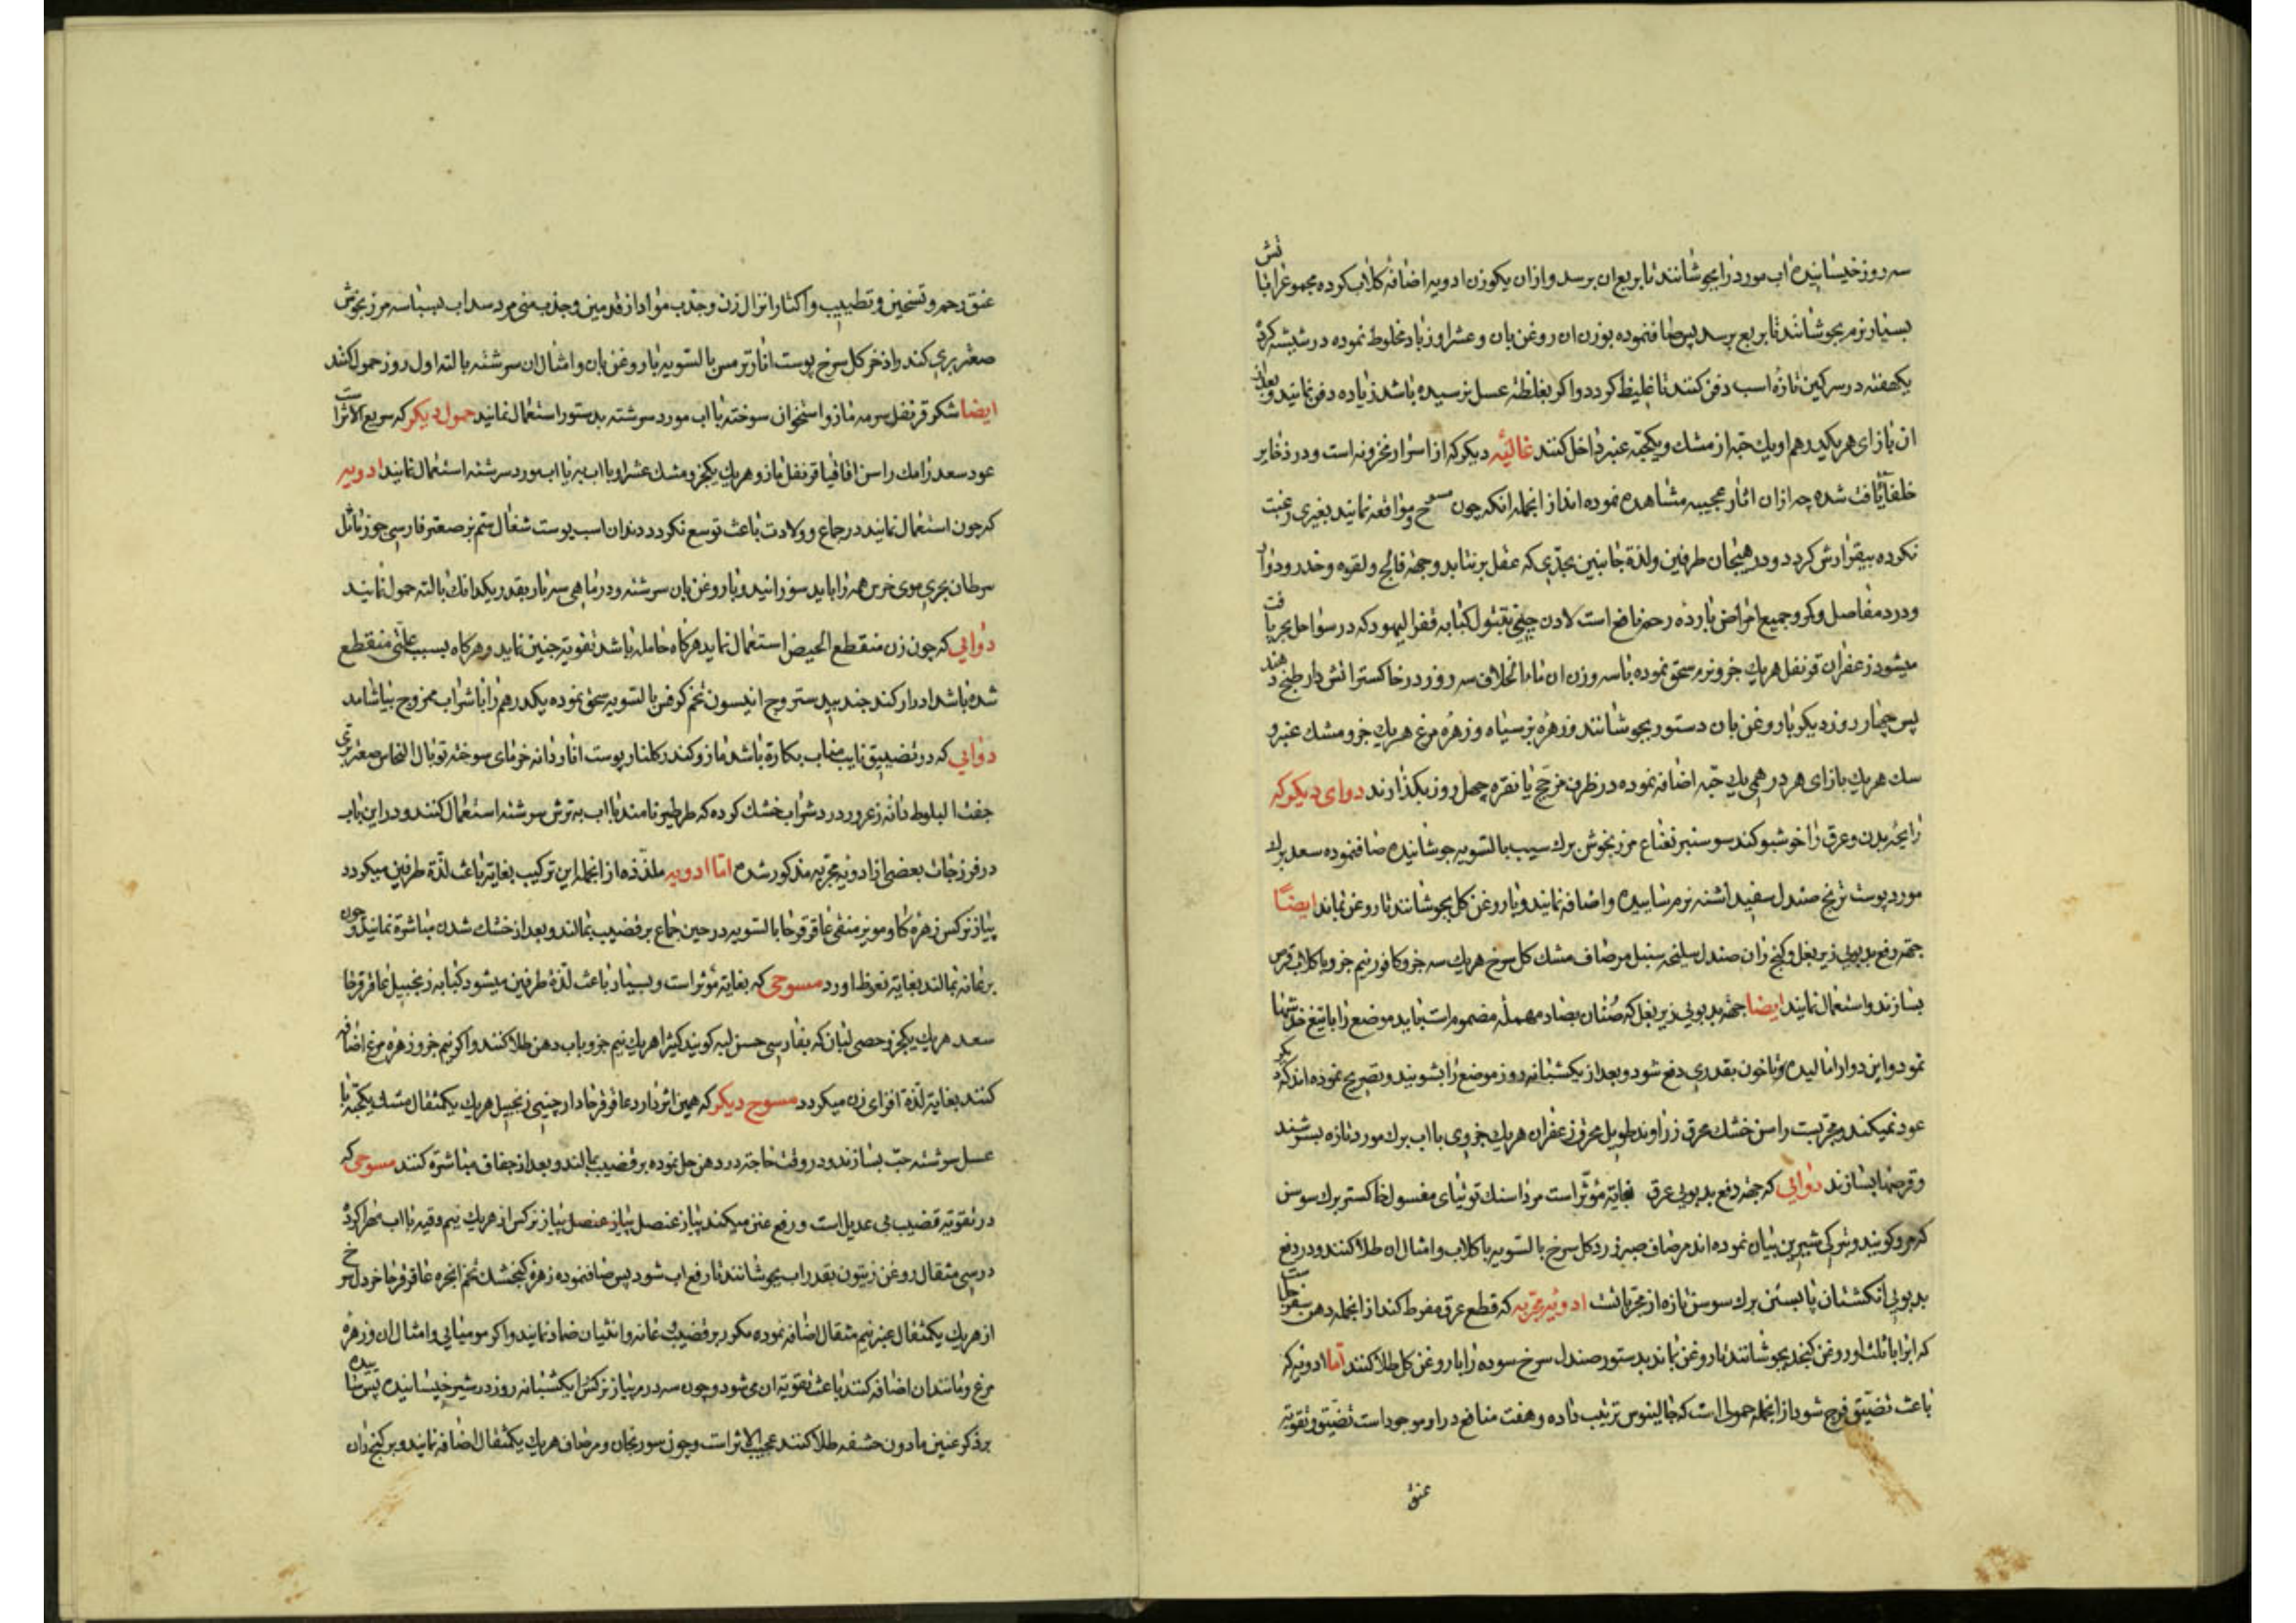 سه روز خیسانیده اب مورد را بجوشانند تا بربع ان برسد و ازان یکوزن ادویه اضافه کلاب کرده مجموع را با تش
بسیار نرم بجوشانند تا بربع برسد پس صاف نموده بوزن ان روغن بان و عشر او زباد مخلوط نموده در شیشه کرده
یکهفته در سرکین تازه اسب دفن کنند تا غلیظ کردد و اکر بغلظة عسل نرسیده باشد زیاده دفن نمایند و بعد از
ان بازای هر یکدرهم او یك حبه از مشك و یکحبه عنبر داخل کنند غالیه دیکر که از اسرار مخزونه است و در ذخایر
خلفا یافت شده چه ازان اثار عجیبه مشاهده نموده اند از انجمله انکه چون مسوح و مواقعه نمایند بغیری رغبت
نکرده بیقرارش کردد و در هیجان طرفین ولذة جانبین بحدی که عقل برنتابد وجهة فالج و لقوه و خدر و دوار
و درد مفاصل و کرو جمیع امراض بارده رحم نافع است لادن چینی تقبئول کبابه قفر الیهود که در سواحل بحر یافت
میشود زعفران قرنفل هر یك جزو نرم سحق نموده با سه وزن ان ماء الخلاف سه روز در خاکستر اتش دار طبخ دهند
پس چهار روز دیکر با روغن بان دستور بجوشانند و زهره بز سیاه و زهره مرغ هر یك جزو مشك عنبر و
سك هر یك بازای هر درهمی یك حبه اضافه نموده در ظرف مزجج یا نقره چهل روز بکذارند دوای دیکر که
رایحه بدن و عرق را خوشبو کند سوسنبر نعناع مرزنجوش برك سیب بالتسویه جوشانیده صاف نموده سعد برك
مورد پوست ترنج صندل سفید اشنه نرم سائیده و اضافه نمایند و با روغن کل بجوشانند تا روغن بماند ایضا
جهة رفع بد بویی زیر بغل و کنج ران صندل سلیخه سنبل مرصاف مشك کل سرخ هر یك سه جزو کافور نیم جزو با کلاب قرص
بسازند و استعمال نمایند ایضا جهة بد بویی زیر بغل که صنان بصاد مهمله مضمومه است باید موضع را با تیغ خدشها
نمود و این دوا را مالیده و تا خون بقدری دفع شود و بعد از یکشبانه روز موضع را بشویند و تصریح نموده اند که دیکر
عود نمیکند و مجربست راسن خشك عرق زراوند طویل محرق زعفران هر یك جزوی با اب برك مورد تازه بسرشند
و قرصها بسازند دوائی که جهة دفع بد بویی عرق بغایة مؤثر است مرداسنك توتیای مغسول خاکستر برك سوسن
که مرو کویند و بترکی شیرین بیان نموده اند مرصاف صبر زرد کل سرخ بالتسویه با کلاب و امثال ان طلا کنند و در دفع
بد بویی انکشتان پا بستن برك سوسن تازه از مجربات است ادویه مجربه که قطع عرق مفرط کند از انجمله دهن سفرجل است
که ابرا با ثلث او روغن کنجد بجوشانند تا روغن بماند بدستور صندل سرخ سوده را با روغن کل طلا کنند اما ادویه که
باعث تضییق فرج شود از انجمله حمولی است که جالینوس ترتیب داده و هفت منافع در او موجود است تضییق و تقویة
عنق
عنق رحم و تسخین و تطییب و اکثار انزال زن و جذب مواد از قدمین و جذب منی مرد سداب بسباسه مرزنجوش
صعتر بری کندر اذخر کل سرخ پوست انار ترمس بالتسویه با روغن بان و امثال ان سرشته بالته اول روز حمول کنند
ایضا شکر قرنفل سرمه مازو استخوان سوخته با اب مورد سرشته بدستور استعمال نمایند حمول دیکر که سریع الاثر است
عود سعد رامك راسن اقاقیا قرنفل مازو هر یك یکجزو مشك عشر او با اب به یا اب مورد سرشته استعمال نمایند ادویه
که چون استعمال نمایند در جماع و ولادت باعث توسع نکردد دندان اسب پوست شغال سم بز صعتر فارسی جوز ماثل
سرطان بحری موی خرس همه را باید سوزانید و با روغن بان سرشته و در ماهی سه بار بقدر یکدانك بالته حمول نمایند
دوائی که چون زن منقطع الحیض استعمال نماید هرکاه حامله باشد تقویة جنین نماید و هرکاه بسبب علتی منقطع
شده باشد ادرار کند جند بیدستر وج انیسون تخم کرفس بالتسویه سحق نموده یکدرهم را با شراب ممزوج بیاشامند
دوائی که در تضییق نایب مناب بکارة باشد مازو کندر کلنار پوست انار دانه خرمای سوخته توبال النحاس صعتر بری
جفت البلوط دانه زعرور درد شراب خشك کرده که طرطیر نامند با اب به ترش سرشته استعمال کنند و در این باب
در فرزجات بعضی از ادویه مجربه مذکور شده اما ادویه ملذذه از انجمله این ترکیب بغایة باعث لذة طرفین میکردد
پیاز نرکس زهره کاو مویز منقی عاقرقرحا بالتسویه در حین جماع بر قضیب بمالند و بعد از خشك شدن مباشرة نمایند و چون
بر عانه بمالند بغایة نعوظ اورد مسوحی که بغایة مؤثر است و بسیار باعث لذة طرفین میشود کبابه زنجبیل عاقرقرحا
سعد هر یك یکجزو حصی لبان که بفارسی حسن لبه کویند کثیرا هر یك نیم جزو باب دهن طلا کنند و اکر نیم جزو زهره مرغ اضافه
کنند بغایة لذة افزای زن میکردد مسوح دیکر که همین اثر دارد عاقرقرحا دارچینی زنجبیل هر یك یکمثقال مشك یکحبه با
عسل سرشته حب بسازند و در وقت حاجة در دهن حل نموده بر قضیب بمالند و بعد از جفاف مباشرة کنند مسوحی که
در تقویة قضیب بی عدیل است و رفع عنن میکند پیاز عنصل پیاز عنصل پیاز نرکس از هر یك نیم وقیه با اب مهرا کرده
در سی مثقال روغن زیتون بقدر اب بجوشانند تا رفع اب شود پس صاف نموده زهره کنجشك تخم انجره عاقرقرحا خردل سرخ
از هر یك یکمثقال عنبر نیم مثقال اضافه نموده مکرر بر قضیب و عانه و انثیان ضماد نمایند و اکر مومیائی و امثال ان و زهره
مرغ و مانند ان اضافه کنند باعث تقویة ان می شود و چون سه درم پیاز نرکس را یکشبانه روز در شیر خیسانیده پس سائیده
بر ذکر عنین مادون حشفه طلا کنند عجیب الاثر است و چون سورنجان و مرصاف هر یك یکمثقال اضافه نمایند و بر کنج ران